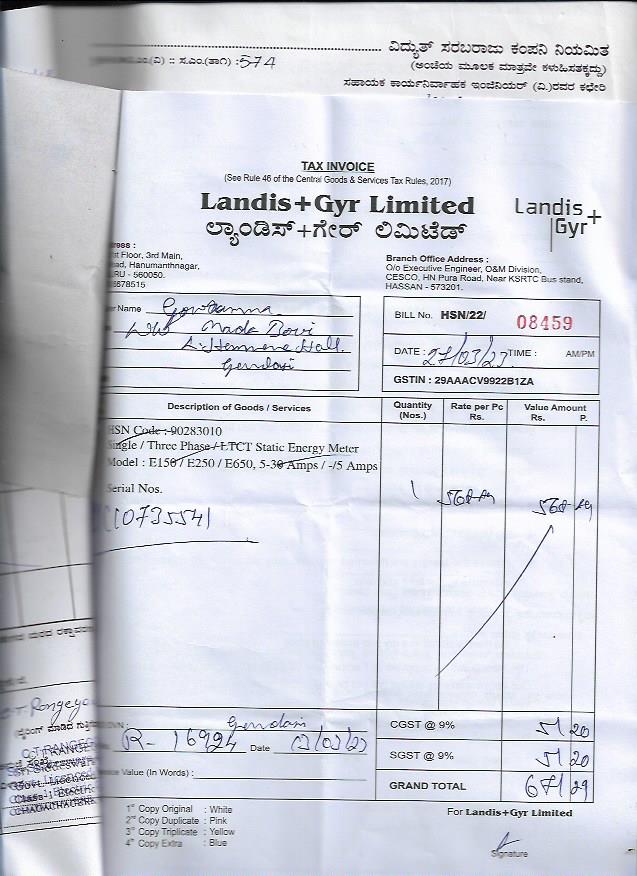 ವಿದ್ಯುತ್ ಸರಬರಾಜು ಕಂಪನಿ ನಿಯಮಿತ
ಸ.ಎಂ.(ತಾಂ) :574
(ಅಂಚೆಯ ಮೂಲಕ ಮಾತ್ರವೇ ಕಳುಹಿಸತಕ್ಕದ್ದು)
ಸಹಾಯಕ ಕಾರ್ಯನಿರ್ವಾಹಕ ಇಂಜಿನಿಯರ್ (ವಿ.)ರವರ ಕಛೇರಿ
TAX INVOICE
(See Rule 46 of the Central Goods & Services Tax Rules, 2017)
Landis+Gyr Limited
ಲ್ಯಾಂಡಿಸ್+ಗೇರ್ ಲಿಮಿಟೆಡ್
Landis+
Gyr
Floor, 3rd Main,
Hanumanthnagar,
- 560050.
Branch Office Address :
O/o Executive Engineer, O&M Division,
CESCO, HN Pura Road, Near KSRTC Bus stand,
HASSAN - 573201.
Name Gowramma
W/o Mada Bovi
Gendasi
BILL No. HSN/22/ 08459
DATE : 27/03/23 TIME : AM/PM
GSTIN : 29AAACV9922B1ZA
Description of Goods / Services
Quantity (Nos.)
Rate per Pc Rs.
Value Amount Rs. P.
HSN Code :-90283010
Single / Three Phase / LTCT Static Energy Meter
Model : E150 / E250 / E650, 5-30 Amps / -/5 Amps
Serial Nos.
1 568-89 568-89
Gendasi
R-16924 Date
Value (In Words) :
CGST @ 9% 51 20
SGST @ 9% 51 20
GRAND TOTAL 671 29
1st Copy Original : White
2nd Copy Duplicate : Pink
3rd Copy Triplicate : Yellow
4th Copy Extra : Blue
For Landis+Gyr Limited
Signature